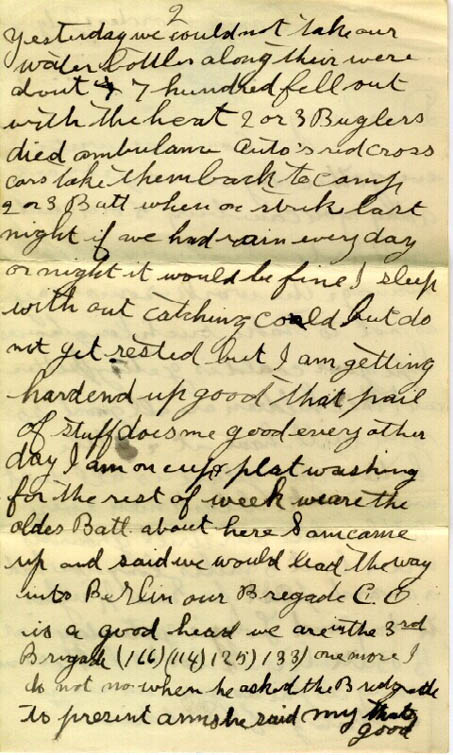 2
yesterday we could not take our
water bottles along their were
about 7 hundred fell out
with the heat 2 or 3 Buglers
died ambulance Auto's red cross
cars take them back to camp
2 or 3 Batt when on strik last
night if we had rain every day
or night it would be fine I sleep
with out catching cold but do
not get rested but I am getting
hardend up good that pail
of stuff does me good every other
day I am on cup plat washing
for the rest of week we are the
oldes Batt. about here Sam came
up and said we would lead the way
into Berlin our Bregade C.O
is a good head we are in the 3rd
Brigade (166) (114) 125) 133) one more I
do not no when he asked the
to present arms he said my thats
good